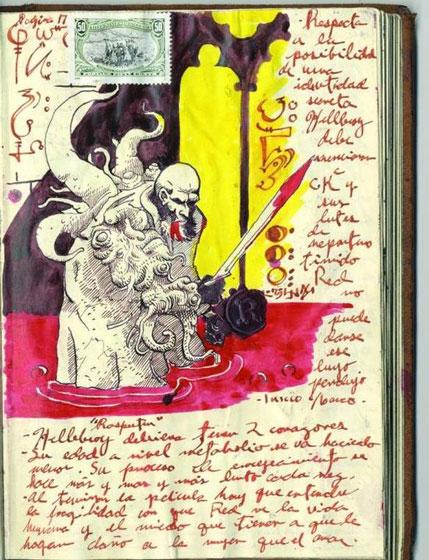 Página 17
50 50
- Respecto
a la
posibilidad
de una
identidad
secreta
Hellboy
debe
mencionar
CK y
sus
lentes
de
reportero
timido
Red
no
puede
darse
ese
lujo
pendejo
- Inicio
R
"Rasputin"
- Hellboy debiera tener 2 corazones
- Su edad a nivel metabolico se va haciendo
menor. Su proceso de envejecimiento se
hace mas y mas y mas lento cada vez.
- Al terminar la pelicula hay que entender
la fragilidad con que Red ve la vida
humana y el miedo que tienen a que le
hagan daño a la mujer que el ama.